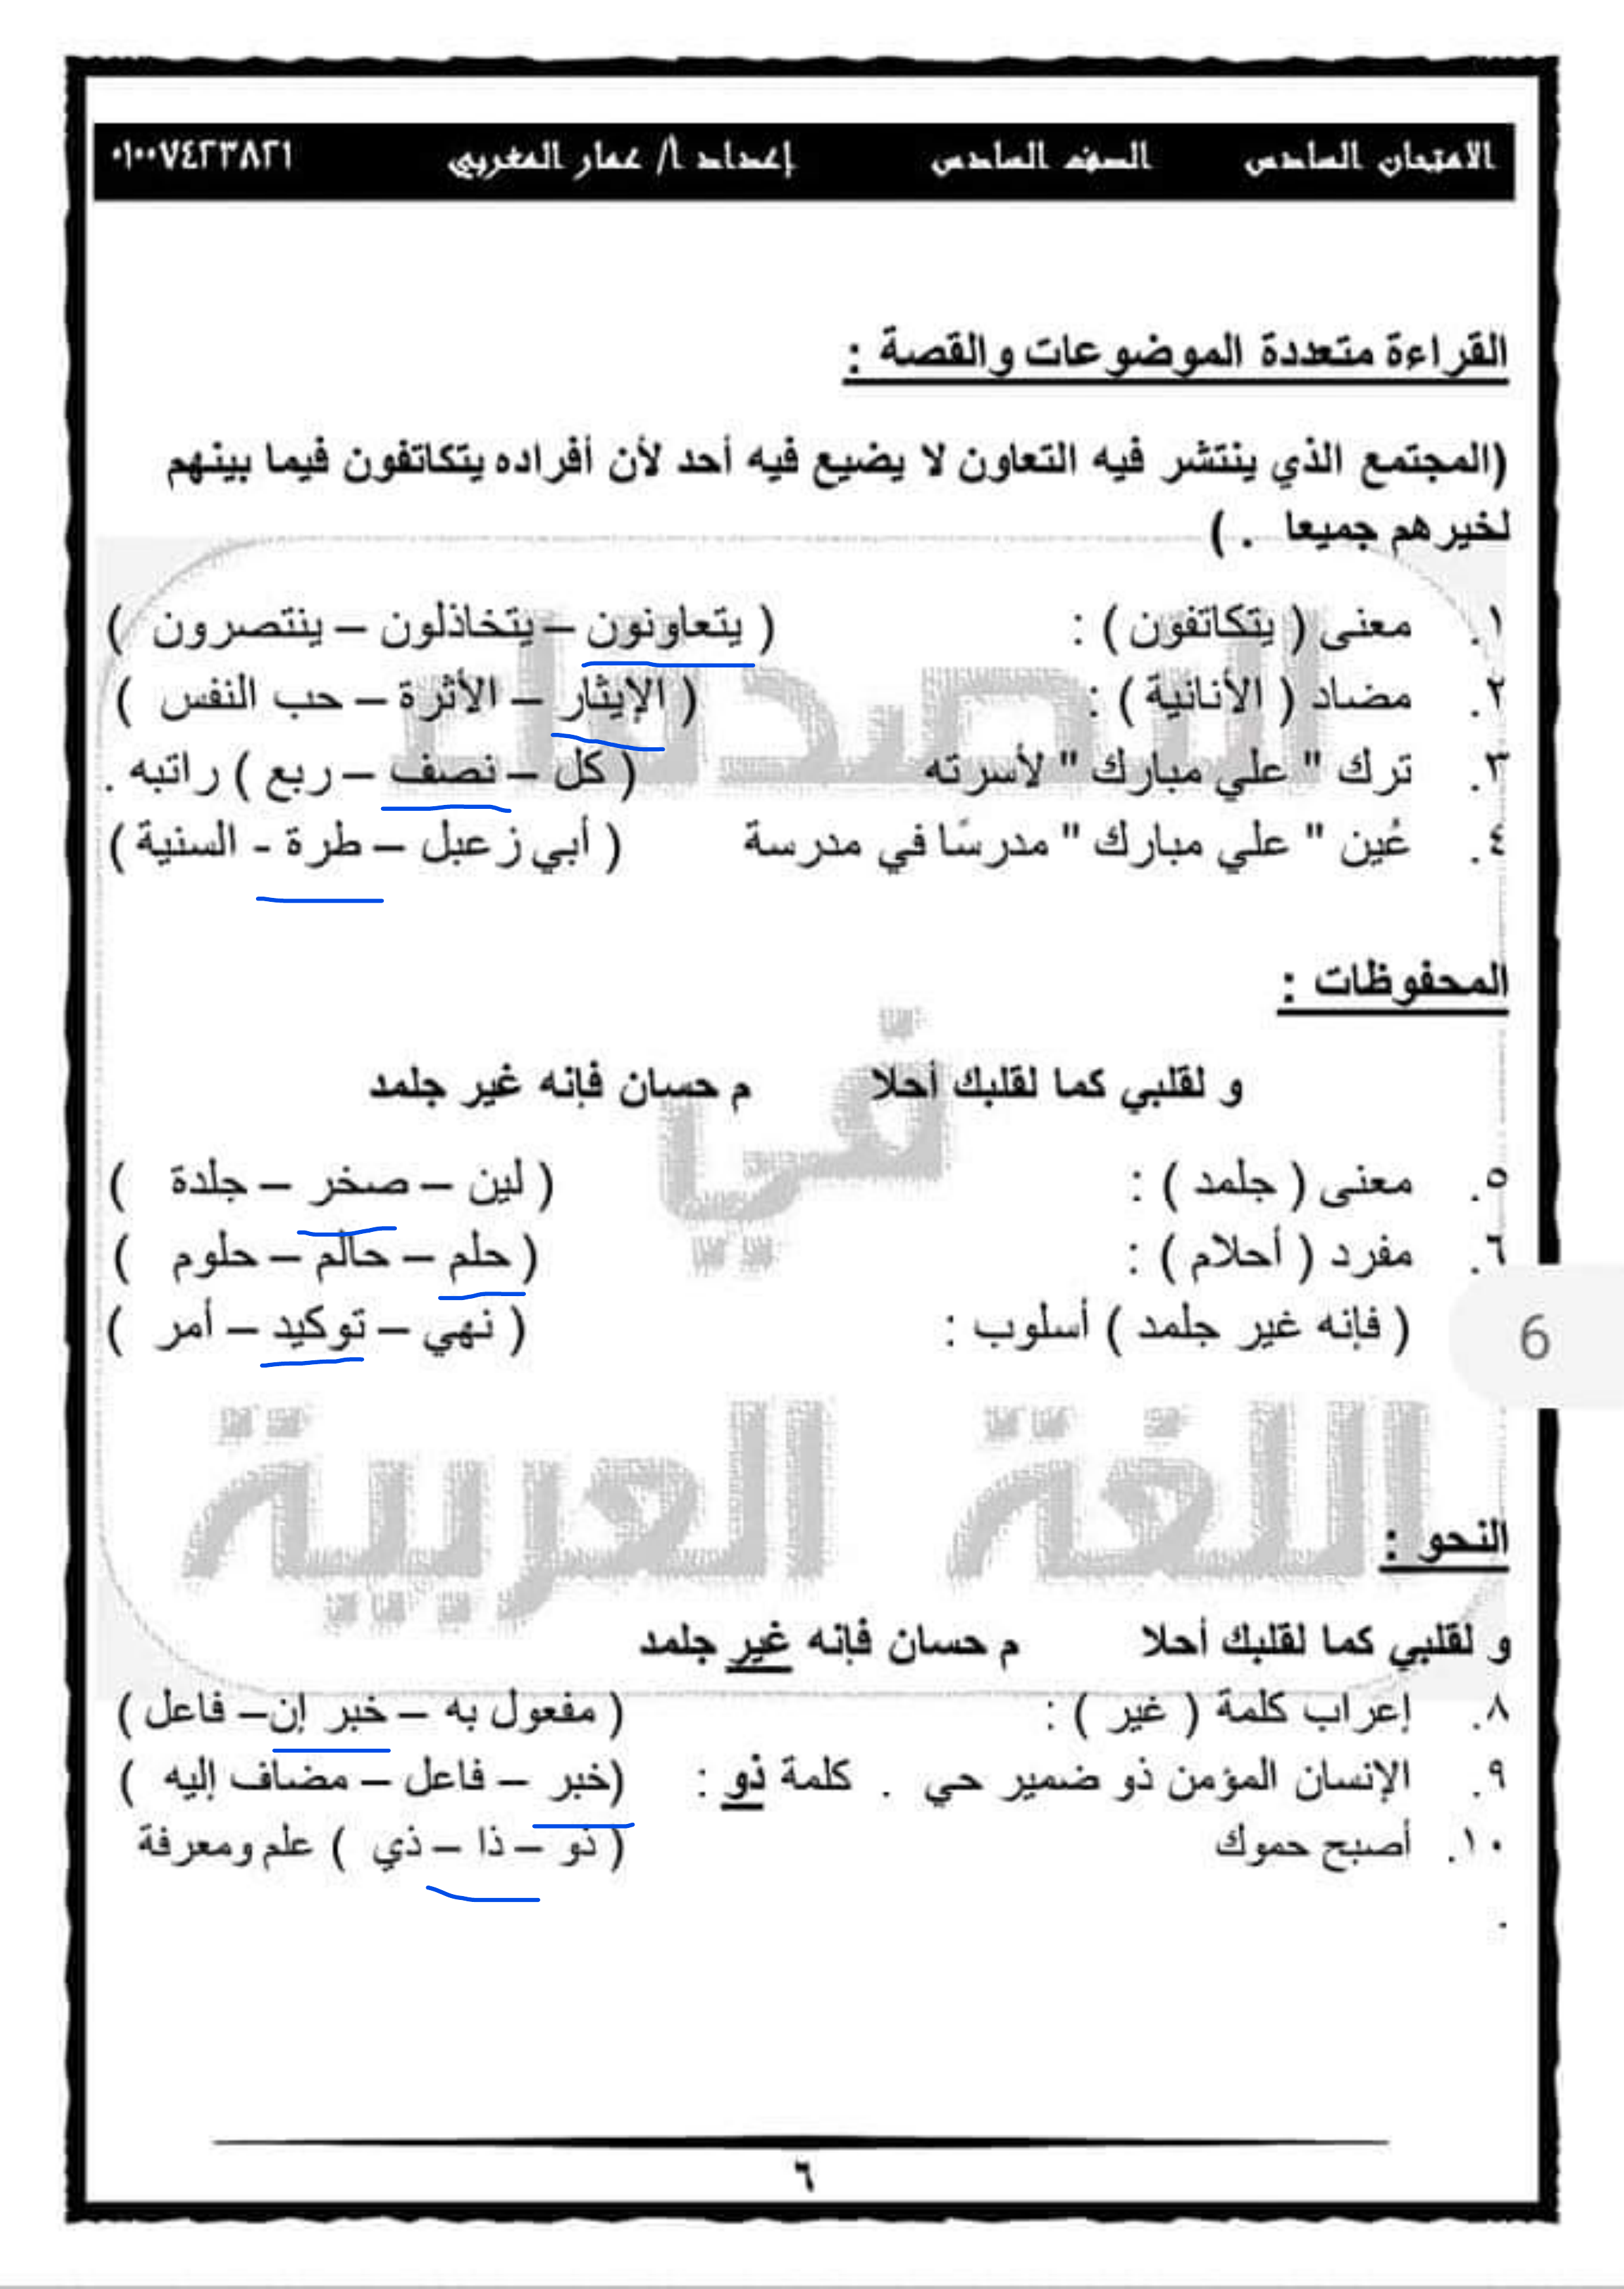 الامتحان السادس الصف السادس إعداد أ/ عمار المغربي ٠١٠٠٧٤٢٣٨٢١
القراءة متعددة الموضوعات والقصة :
(المجتمع الذي ينتشر فيه التعاون لا يضيع فيه أحد لأن أفراده يتكاتفون فيما بينهم
لخيرهم جميعا . )
١. معنى ( يتكاتفون ) : ( يتعاونون – يتخاذلون – ينتصرون )
٢. مضاد ( الأنانية ) : ( الإيثار – الأثرة – حب النفس )
٣. ترك " علي مبارك " لأسرته ( كل – نصف – ربع ) راتبه .
٤. عُين " علي مبارك " مدرسًا في مدرسة ( أبي زعبل – طرة - السنية )
المحفوظات :
و لقلبي كما لقلبك أحلا م حسان فإنه غير جلمد
٥. معنى ( جلمد ) : ( لين – صخر – جلدة )
٦. مفرد ( أحلام ) : ( حلم – حالم – حلوم )
( فإنه غير جلمد ) أسلوب : ( نهي – توكيد – أمر )
6
النحو :
و لقلبي كما لقلبك أحلا م حسان فإنه غير جلمد
٨. إعراب كلمة ( غير ) : ( مفعول به – خبر إن– فاعل )
٩. الإنسان المؤمن ذو ضمير حي . كلمة ذو : (خبر – فاعل – مضاف إليه )
١٠. أصبح حموك ( ذو – ذا – ذي ) علم ومعرفة
.
٦
في
اللغة العربية